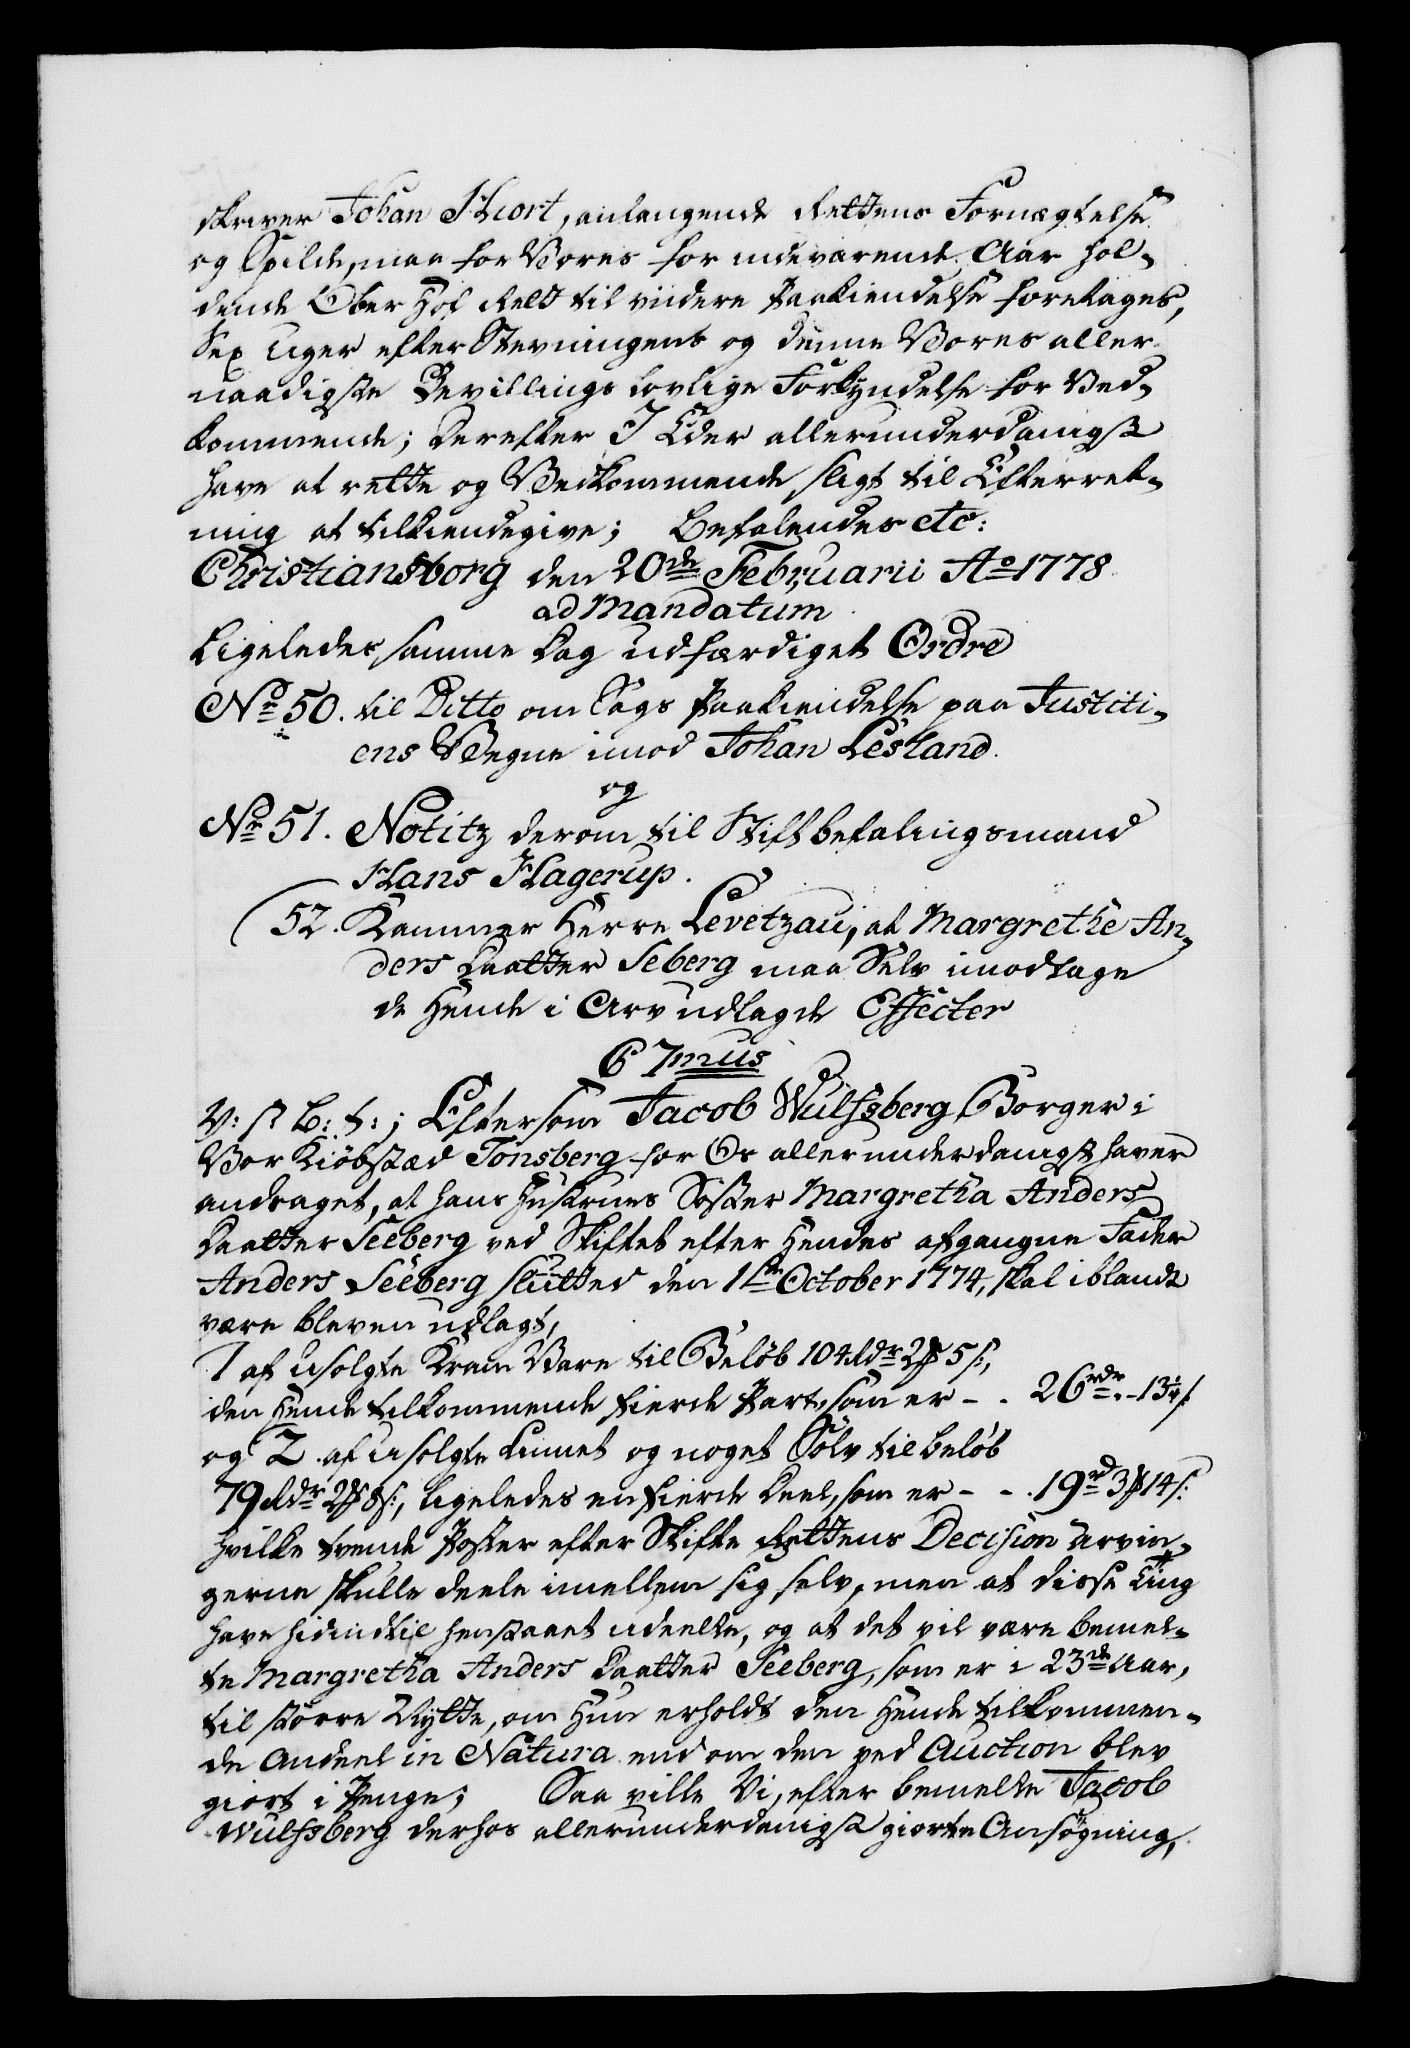 skriver Johan Hiort, anlangende Rettens Fornægtelse
og Spilde, maa for Vores for indeværende Aar hol-
dende Ober Hof Rett til videre Paakiendelse foretages,
Sex Uger efter Stevningens og denne Vores aller-
naadigste Bevillings lovlige Forkyndelse for Ved-
kommende; Derefter I Eder allerunderdanigst
have at rette og Vedkommende sligt til Efterret-
ning at tilkiendegive; Befalendes etc:
Christiansborg den 20de Februarii Ao 1778.
ad Mandatum
Ligeledes samme Dag udfærdiget Ordre
No 50. til Ditto om Sags Paakiendelse paa Justiti-
ens Vegne imod Johan Lesland.
og
No 51. Notitz derom til Stiftbefalingsmand
Hans Hagerup.
52. Kammer Herre Levetzau, at Margrethe An-
ders Daatter Seberg maa Selv imodtage
de Hende i Arv udlagde Effecter
C 7mus
V: G B: t:; Eftersom Jacob Wulfsberg Borger i
Vor Kiöbstæd Tönsberg for Os allerunderdanigst haver
andraget, at hans Hustrues Söster Margretha Anders
Daatter Seeberg ved Skiftet efter Hendes afgangne Fader
Anders Seeberg sluttet den 1ste October 1774, skal iblandt
være bleven udlagt,
1 af usolgte Kram Vare til Beløb 104 rdr 2 ß 5 s:,
den Hende tilkommende fierde Part, som er - . 26 rdr. - 13¼ s
og 2 af usolgte Linnet og noget Sölv til beløb
79 rdr 2 ß 8 s:, ligeledes en fierde Deel, som er - - . 19 rd 3 ß 14 s:
hvilke tvende Poster efter Skifte Rettens Decision Arvin-
gerne skulle deele imellem sig selv, men at disse Ting
have hidindtil henstaaet udeelte, og at det vil være bemel-
te Margretha Anders Daatter Seeberg, som er i 23de Aar,
til större Nytte, om Hun erholdt den Hende tilkommen-
de Andeel in Natura end om den ved Auction blev
giort i Penge; Saa ville Vi, efter bemelte Jacob
Wulfsberg derhos allerunderdanigst giorte Ansøgning,